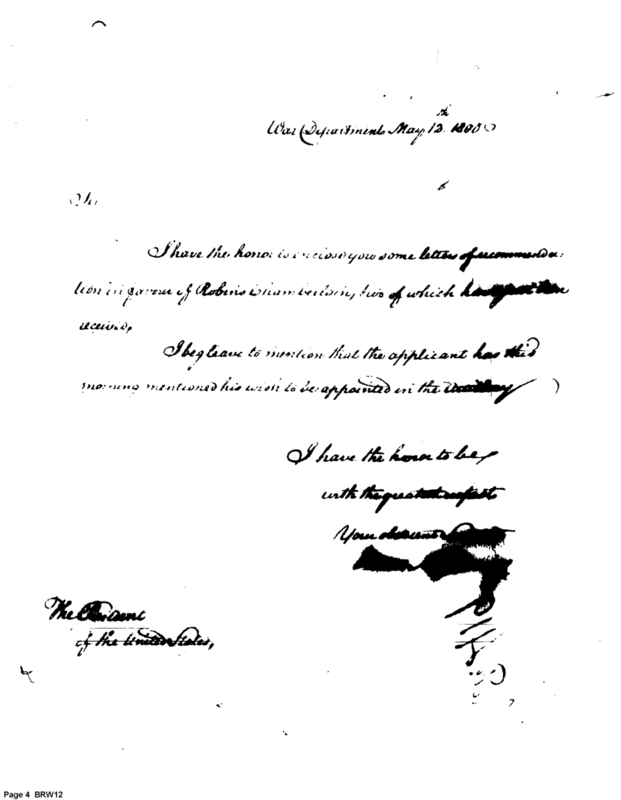 War Department May 12th 1800
Sir
I have the honor to enclose you some letters of recommenda-
tion in favour of Robins Chamberlain, two of which have just been
received,
I beg leave to mention that the applicant has this
morning mentioned his wish to be appointed in the
I have the honor to be,
with the greatest respect
Your obedient
The President
of the United States,
Page 4 BRW12